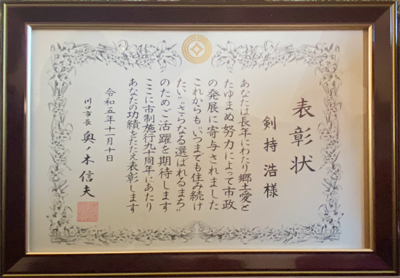 表彰状
剣持浩様
あなたは長年にわたり郷土愛と
たゆまぬ努力によって市政
の発展に寄与されました
これからも"いつまでも住み続け
たい""さらなる選ばれるまち"
のためご活躍を期待します
ここに市制施行九十周年にあたり
あなたの功績をたたえ表彰します
令和五年十一月十日
川口市長 奥ノ木信夫